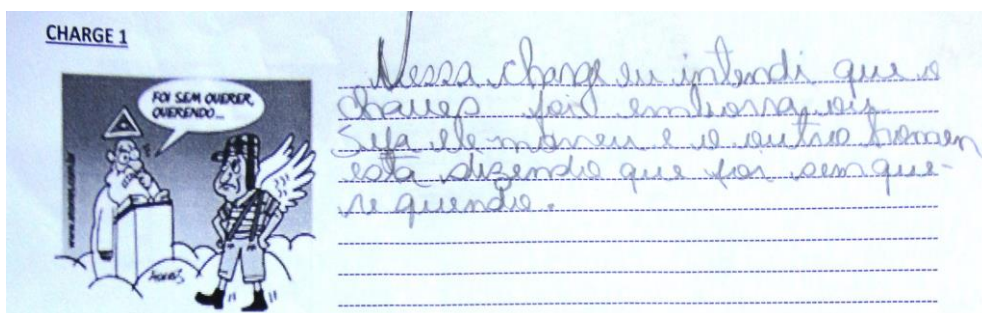 CHARGE 1
FOI SEM QUERER,
QUERENDO...
Nessa charge eu intendi que o
chaves foi embora ou
Seja ele morreu e o outro homem
está dizendo que foi sem que-
re quendo.